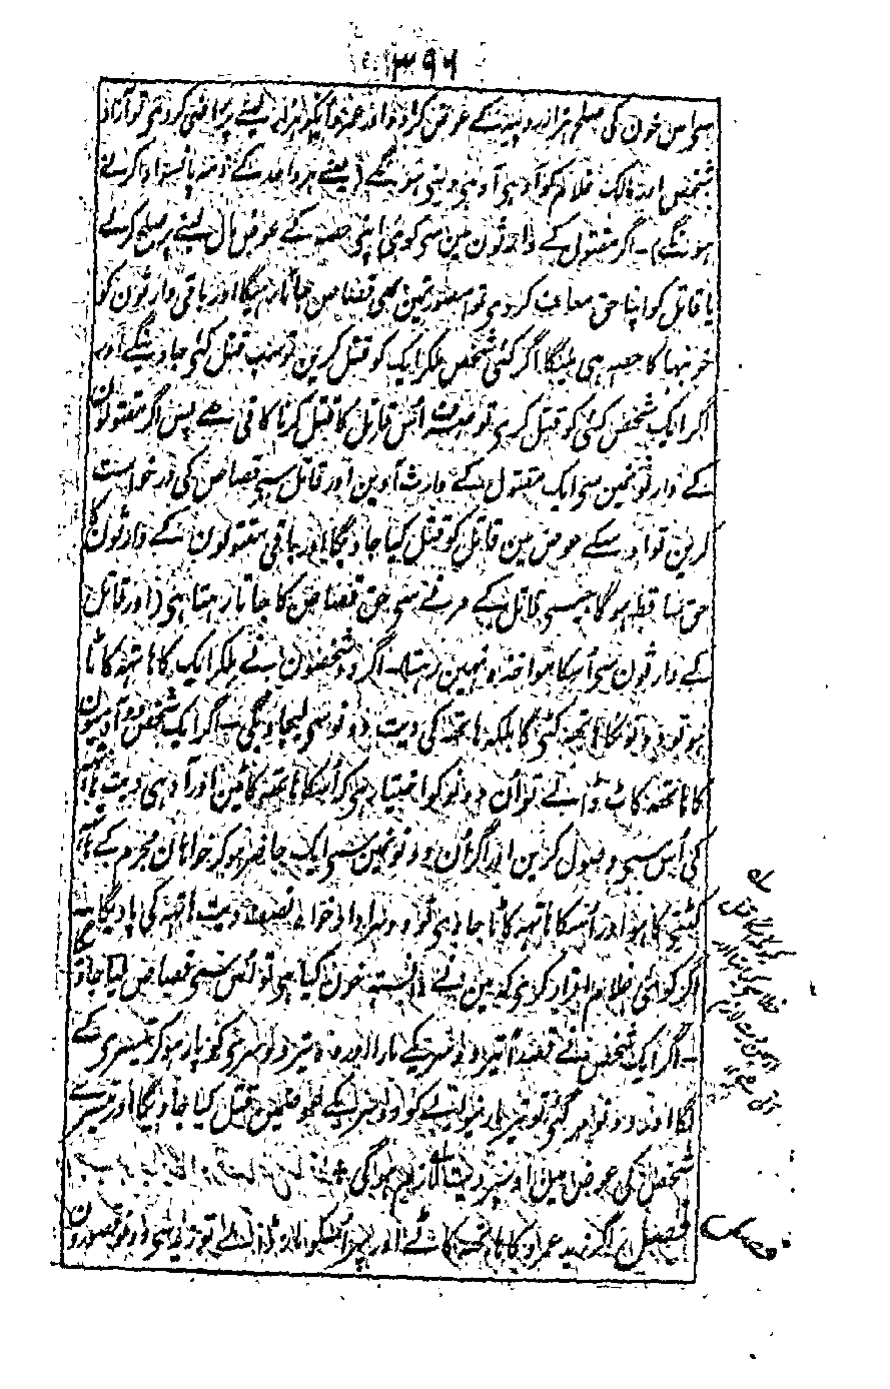 ۳۹۶
سی اس خون کی صلح ہزار روپیہ کے عوض کرا دو اور عمرو انکو ہزار لینے پر راضی کر دی تو آزاد
شخص اور مالک غلام کو آدہی آدہی دینی ہونگے (یعنے ہر واحد کے ذمہ پانسو ادا کرنے
ہونگے)۔ اگر مقتول کے وارثون مین سی کوئی اپنی حصہ کے عوض مال لینے پر صلح کرلے
یا قاتل کو اپنا حق معاف کر دی تو اسصورتمین بھی قصاص جاتا رہیگا اور باقی وارثون کو
خونبہا کا حصہ ہی ملیگا اگر کئی شخص ملکر ایک کو قتل کرین تو سب قتل کئی جاوینگے اور
اگر ایک شخص کئی کو قتل کری تو صرف اُس قاتل کا قتل کرنا کافی ہے پس اگر مقتولون
کے وارثونمین سی ایک مقتول کے وارث آوین اور قاتل سی قصاص کی درخواست
کرین تو اوسکے عوض مین قاتل کو قتل کیا جاویگا اور باقی مقتولون کے وارثون کا
حق ساقط ہوگا جیسی قاتل کے مرنے سی حق قصاص کا جاتا رہتا ہی (اور قاتل
کے وارثون سی اُسکا مواخذہ نہین رہتا)۔ اگر دو شخصون نے ملکر ایک کا ہاتھ کاٹا
ہو تو دونو کا ہاتھ نہ کٹی گا بلکہ ہاتھ کی دیت دونو سی لیجاویگی۔ اگر ایک شخص دو آدمیون
کا ہاتھ کاٹ ڈالے تو اُن دونو کو اختیار ہی کہ اُسکا ہاتھ کاٹین اور آدہی دیت ہاتھ
کی اُس سی وصول کرین اور اگر اُن دونونمین سی ایک حاضر ہو کر خواہان مجرم کے ہاتھ
کٹنی کا ہو اور اُسکا ہاتھ کاٹا جاوی تو دوسرا دادخواہ نصف دیت ہاتھ کی پاویگا۔
اگر کوئی غلام اقرار کری کہ مین نے دانستہ خون کیا ہی تو اُس سی قصاص لیا جاویگا
۔ اگر ایک شخص نے قصداً تیر دوسرے کے مارا اور وہ تیر دوسری کو پار ہو کر تیسری کے
لگا اور دونو مر گئی تو تیر مارنیوالے کو دوسرے کے عوضمین قتل کیا جاویگا اور تیسرے
شخص کی عوض مین اوسپر دیت لازم ہوگی
فصل اگر زید عمرو کا ہاتھ کاٹے اور پھر اُسکو مار ڈالے تو زید سی دونو قصورون
فصل